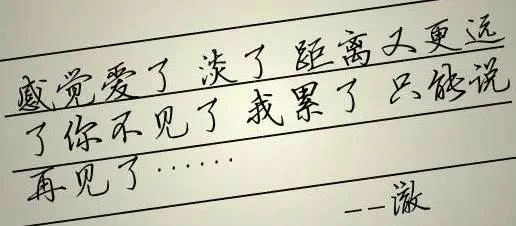 感觉爱了 淡了 距离又更远
了你不见了 我累了 只能说
再见了······
--澈